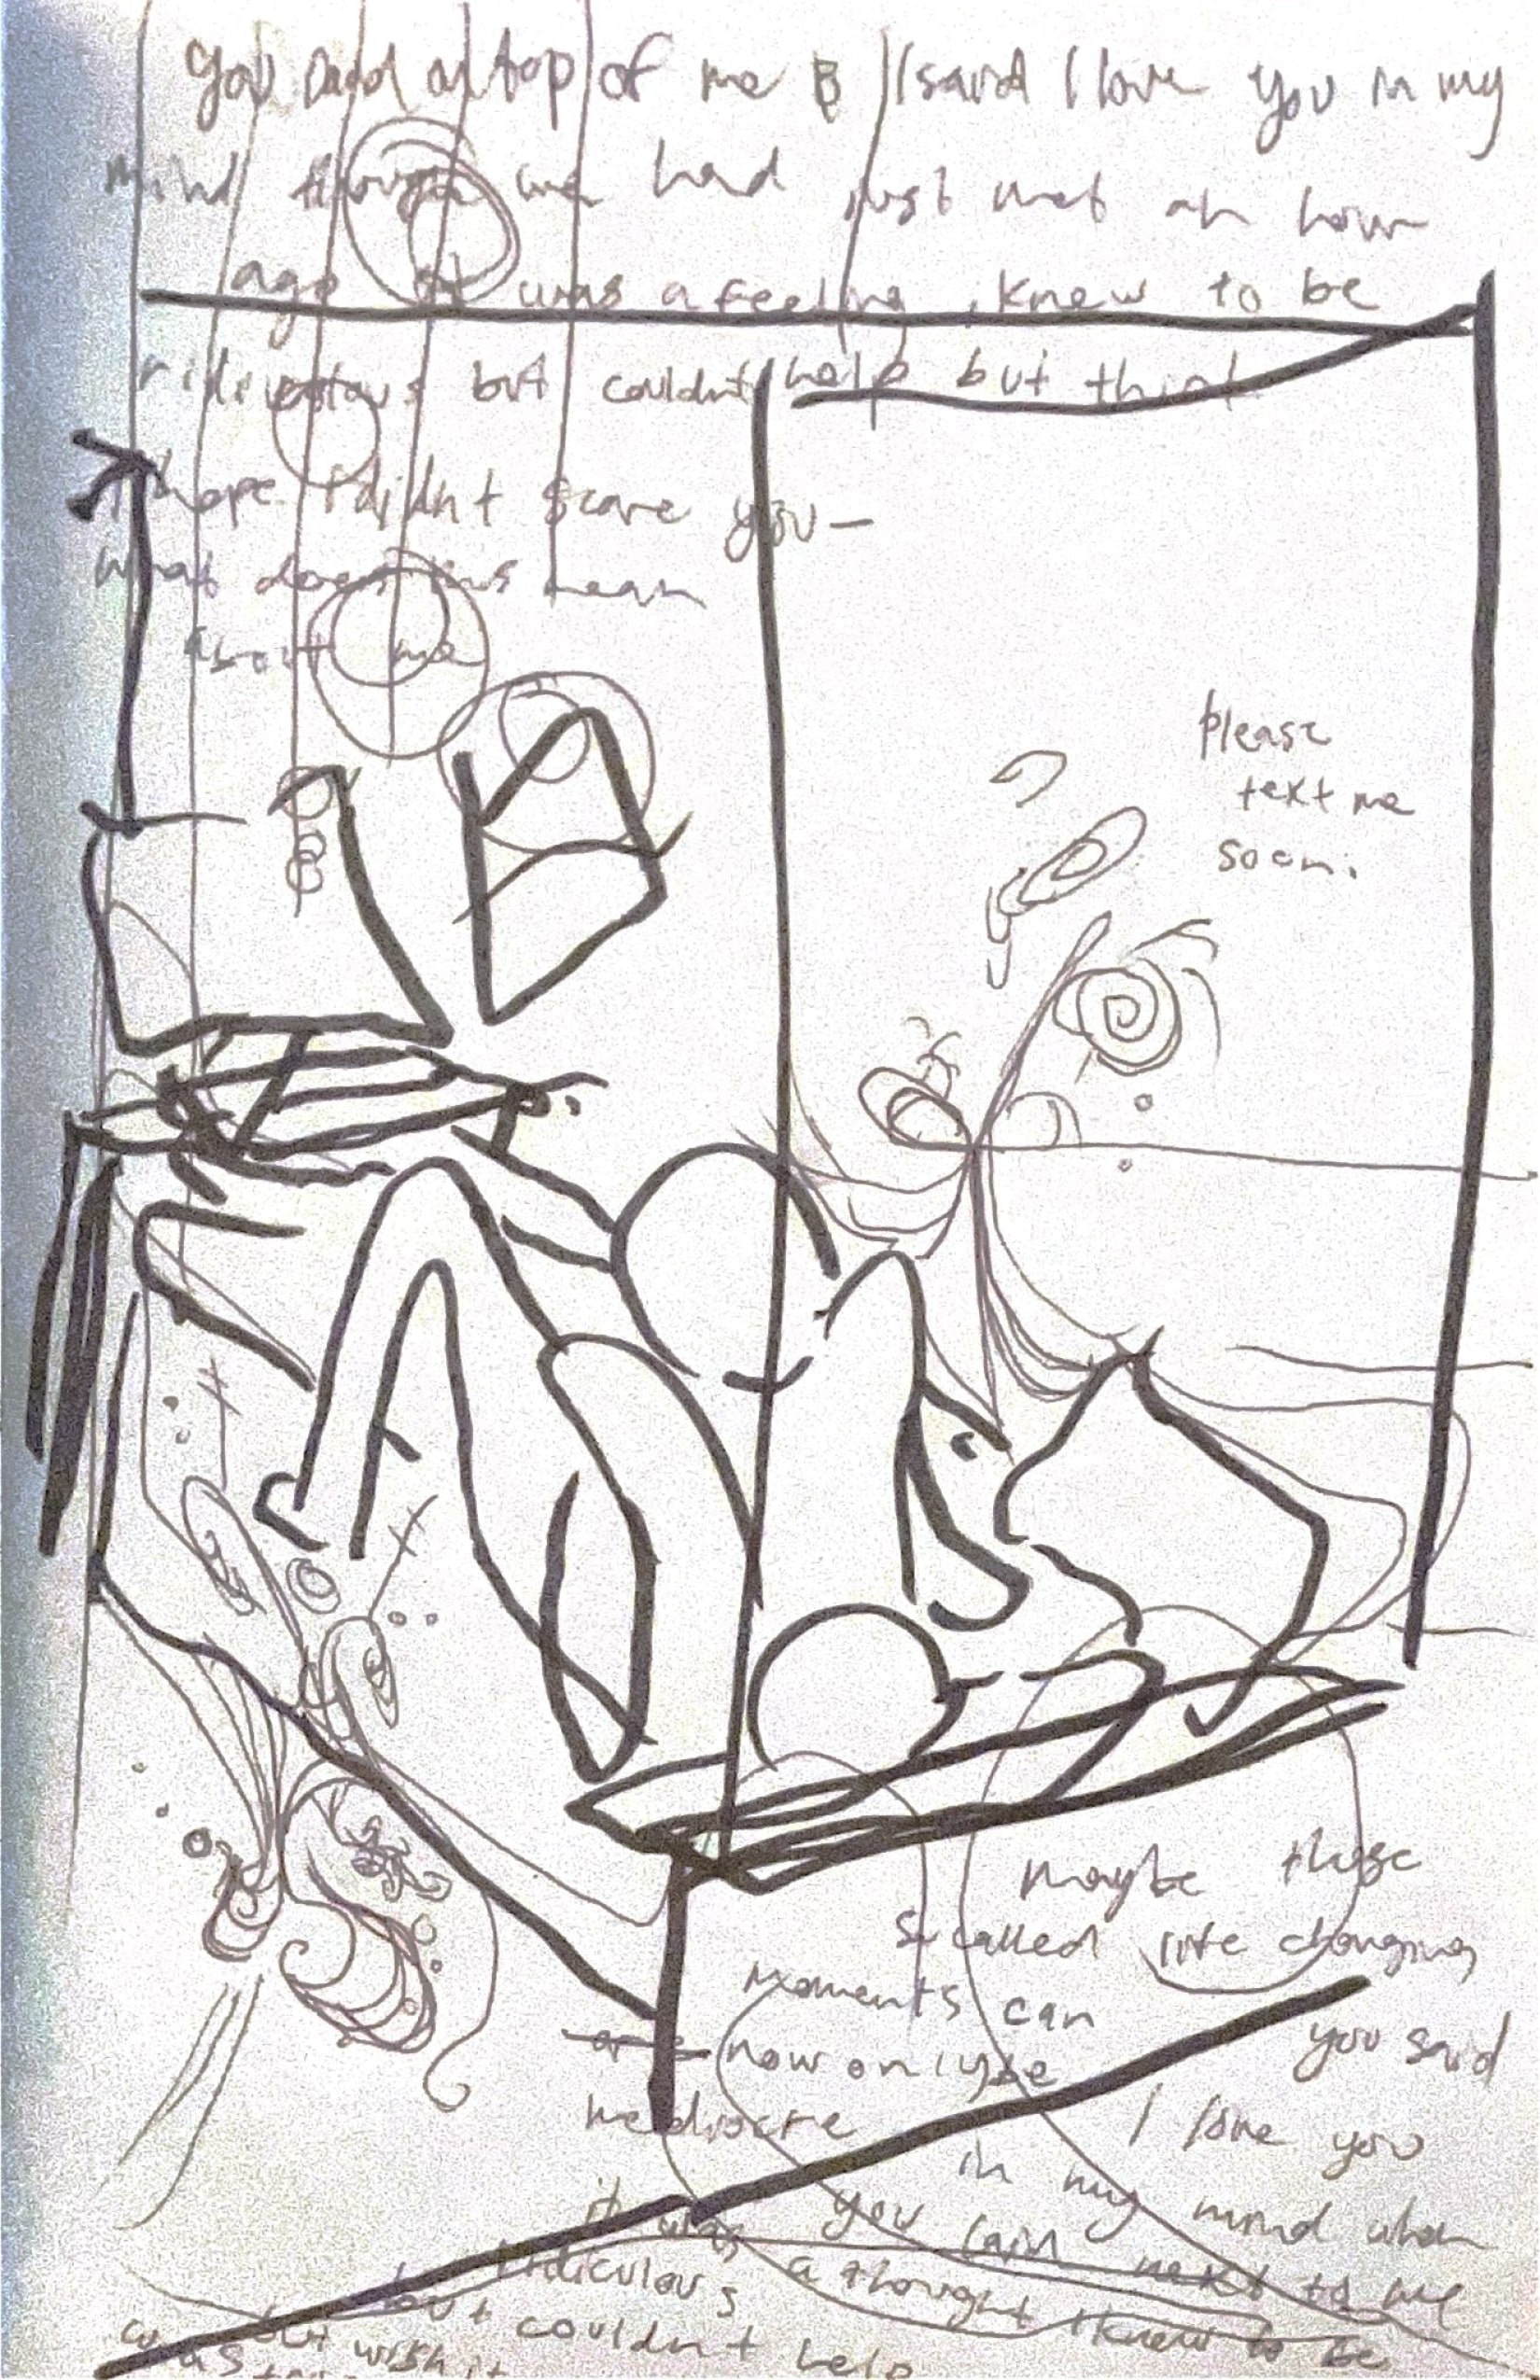 you laid on top of me & I said I love you in my
mind though we had just met an hour
ago it was a feeling I knew to be
ridiculous but couldnt help but think
I hope I didn't scare you—
what does this mean
about me
please
text me
soon.
Maybe these
so called life changing
moments can
are now only be
mediocre
you said
I love you
in my mind when
you lain next to me
it was a thought I knew to be
ridiculous
but couldnt help
but wish it
was